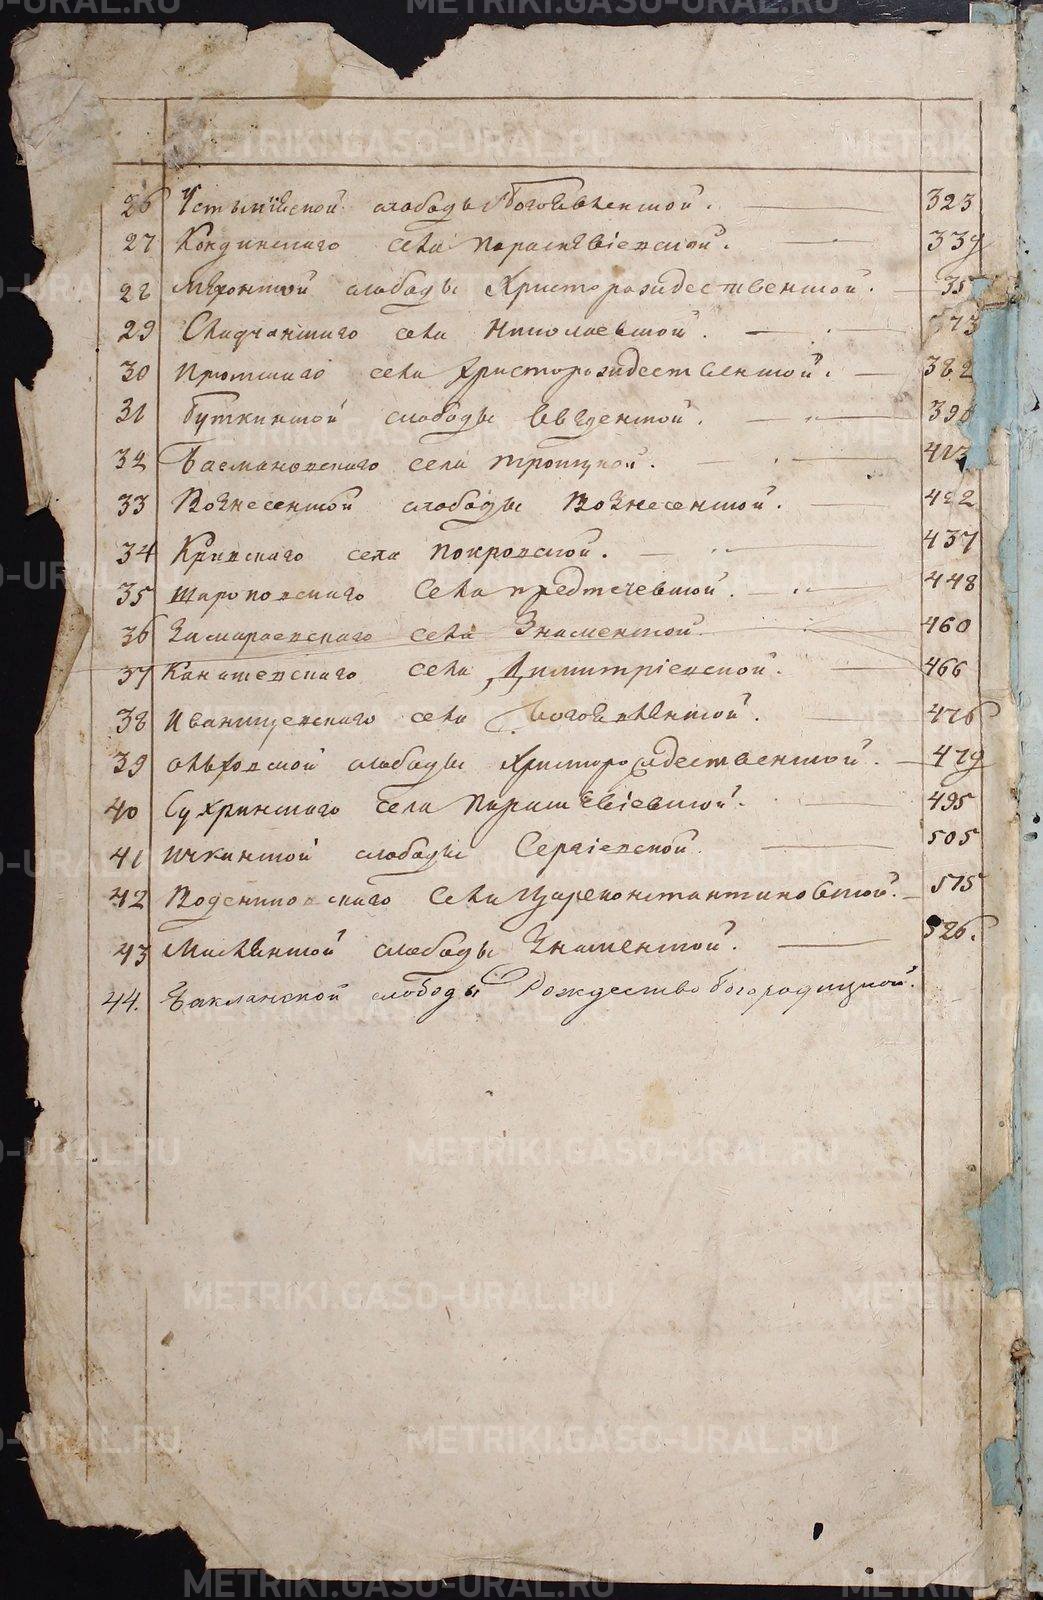 26 Устьміяской слободы Богоявленской. 323
27 Кондинскаго села Параскевіевской. 339
28 Мехонской слободы Христорождественской. 35
29 Скатчанскаго села Николаевской. 373
30 села Христорождественской. 382
31 Буткинской слободы Введенской. 396
32 Басмановскаго села Троицкой. 413
33 Вознесенской слободы Вознесенской. 422
34 Кривскаго села Покровской. 437
35 Широповскаго села Предтечевской. 448
36 Замараевскаго села Знаменской. 460
37 Канашевскаго села Димитріевской. 466
38 Иванищевскаго села Богоявленской. 476
39 Ольховской слободы Христорождественской. 479
40 Сухринскаго села Параскевіевской. 495
41 Ичкинской слободы Сергіевской. 505
42 Воденниковскаго села Цареконстантиновской. 515
43 Маслянской слободы Знаменской. 526.
44. Бакланской слободы Рождество богородицкой.
METRIKI.GASO-URAL.RU